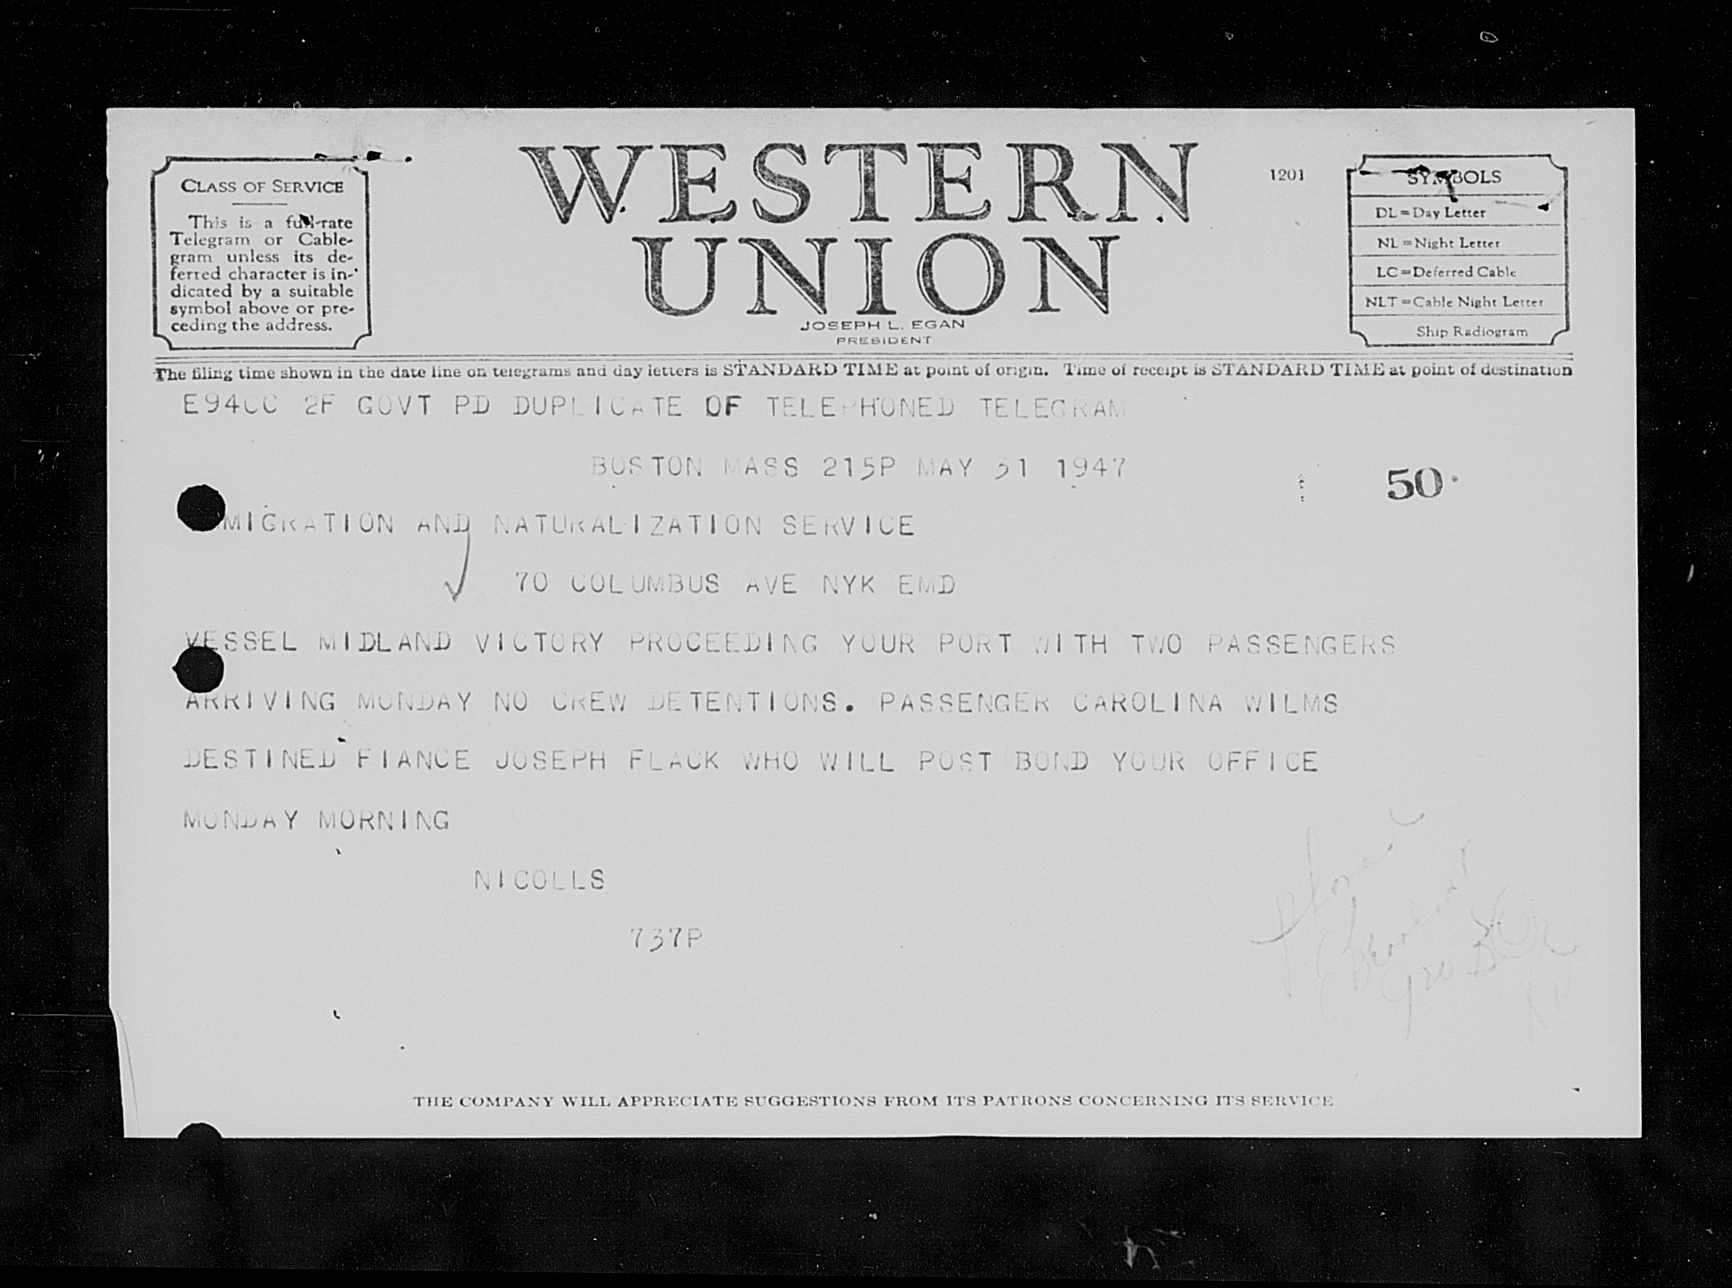 CLASS OF SERVICE
This is a full-rate
Telegram or Cable-
gram unless its de-
ferred character is in-
dicated by a suitable
symbol above or pre-
ceding the address.
WESTERN
UNION
JOSEPH L. EGAN
PRESIDENT
1201
SYMBOLS
DL=Day Letter
NL=Night Letter
LC=Deferred Cable
NLT=Cable Night Letter
Ship Radiogram
The filing time shown in the date line on telegrams and day letters is STANDARD TIME at point of origin. Time of receipt is STANDARD TIME at point of destination
E94CC 2F GOVT PD DUPLICATE OF TELEPHONED TELEGRAM
BOSTON MASS 215P MAY 31 1947
50
MIGRATION AND NATURALIZATION SERVICE
70 COLUMBUS AVE NYK EMD
VESSEL MIDLAND VICTORY PROCEEDING YOUR PORT WITH TWO PASSENGERS
ARRIVING MONDAY NO CREW DETENTIONS. PASSENGER CAROLINA WILMS
DESTINED FIANCE JOSEPH FLACK WHO WILL POST BOND YOUR OFFICE
MONDAY MORNING
NICOLLS
737P
THE COMPANY WILL APPRECIATE SUGGESTIONS FROM ITS PATRONS CONCERNING ITS SERVICE